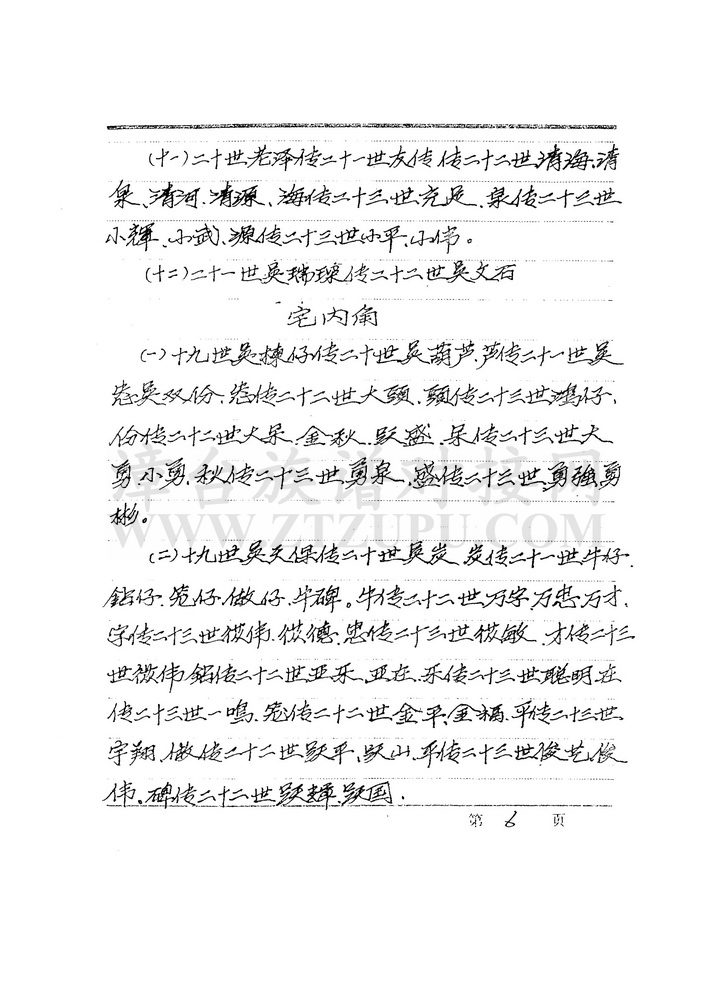 (十一)二十世老泽传二十一世友传传二十二世清海、清
泉、清河、清源、海传二十三世充足、泉传二十三世
小輝、小武、源传二十三世小平、小伟。
(十二)二十一世吴瑞琼传二十二世吴文石
宅内角
(一)十九世吴栋仔传二十世吴葫芦、芦传二十一世吴
吴双份、传二十二世大頭、頭传二十三世鸿仔、
份传二十二世大呆、金秋、跃盛、呆传二十三世大
勇、小勇、秋传二十三世勇泉、盛传二十三世勇強、勇
彬。
(二)十九世吴天保传二十世吴炭、炭传二十一世牛仔、
鉆仔、仔、做仔、牛碑。牛传二十二世万字、万忠、万才、
字传二十三世伟、德、忠传二十三世敏、才传二十三
世微伟、鉆传二十二世亚乐、亚在、乐传二十三世聪明、在
传二十三世一鳴、传二十二世金平、金福、平传二十三世
宇翔、做传二十二世跃平、跃山、平传二十三世俊艺、俊
伟。碑传二十二世跃輝、跃国.
第 6 页
漳台族谱对接网
WWW.ZTZUPU.COM